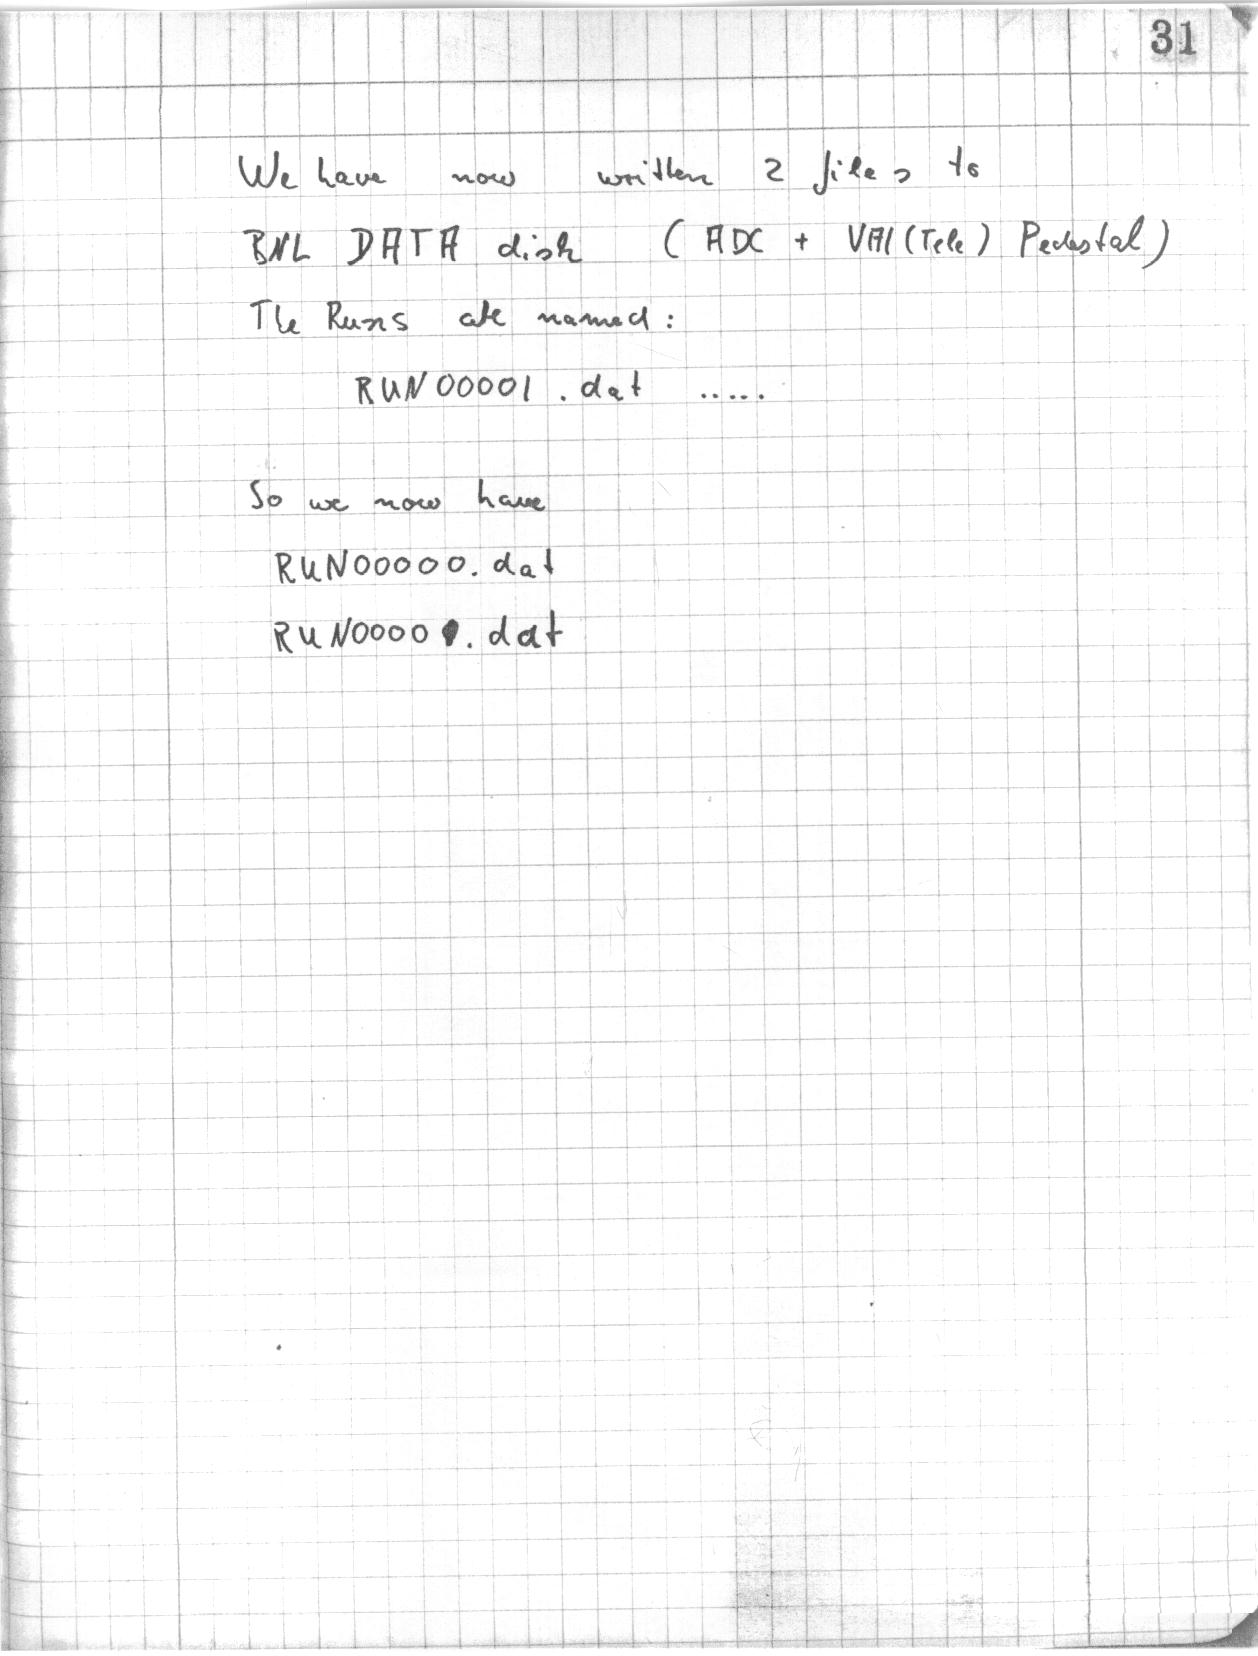 31
We have now written 2 files to
BNL DATA disk ( ADC + VA1(Tele) Pedestal)
The Runs are named:
RUN00001.dat .....
So we now have
RUN00000.dat
RUN00001.dat